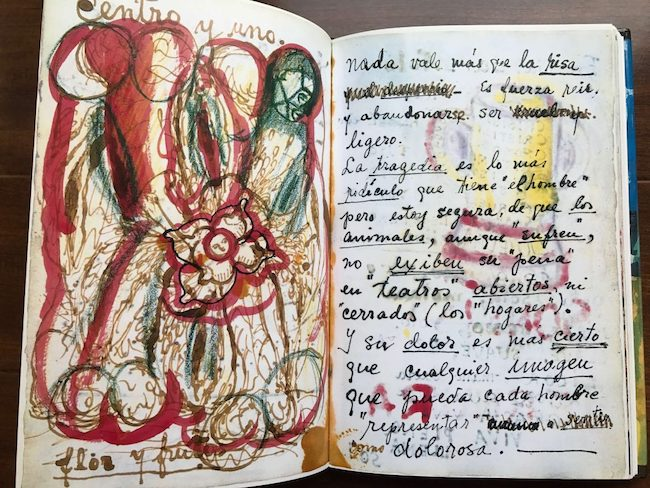 Centro y uno.
flor y fruto
nada vale más que la risa
es fuerza reir
y abandonarse. ser
ligero.
La tragedia es lo más
ridículo que tiene "el hombre"
pero estoy segura, de que los
animales, aunque "sufren",
no exiben su "pena"
en "teatros" abiertos, ni
"cerrados" (los "hogares").
Y su dolor es más cierto
que cualquier imágen
que pueda cada hombre
"representar"
como dolorosa.